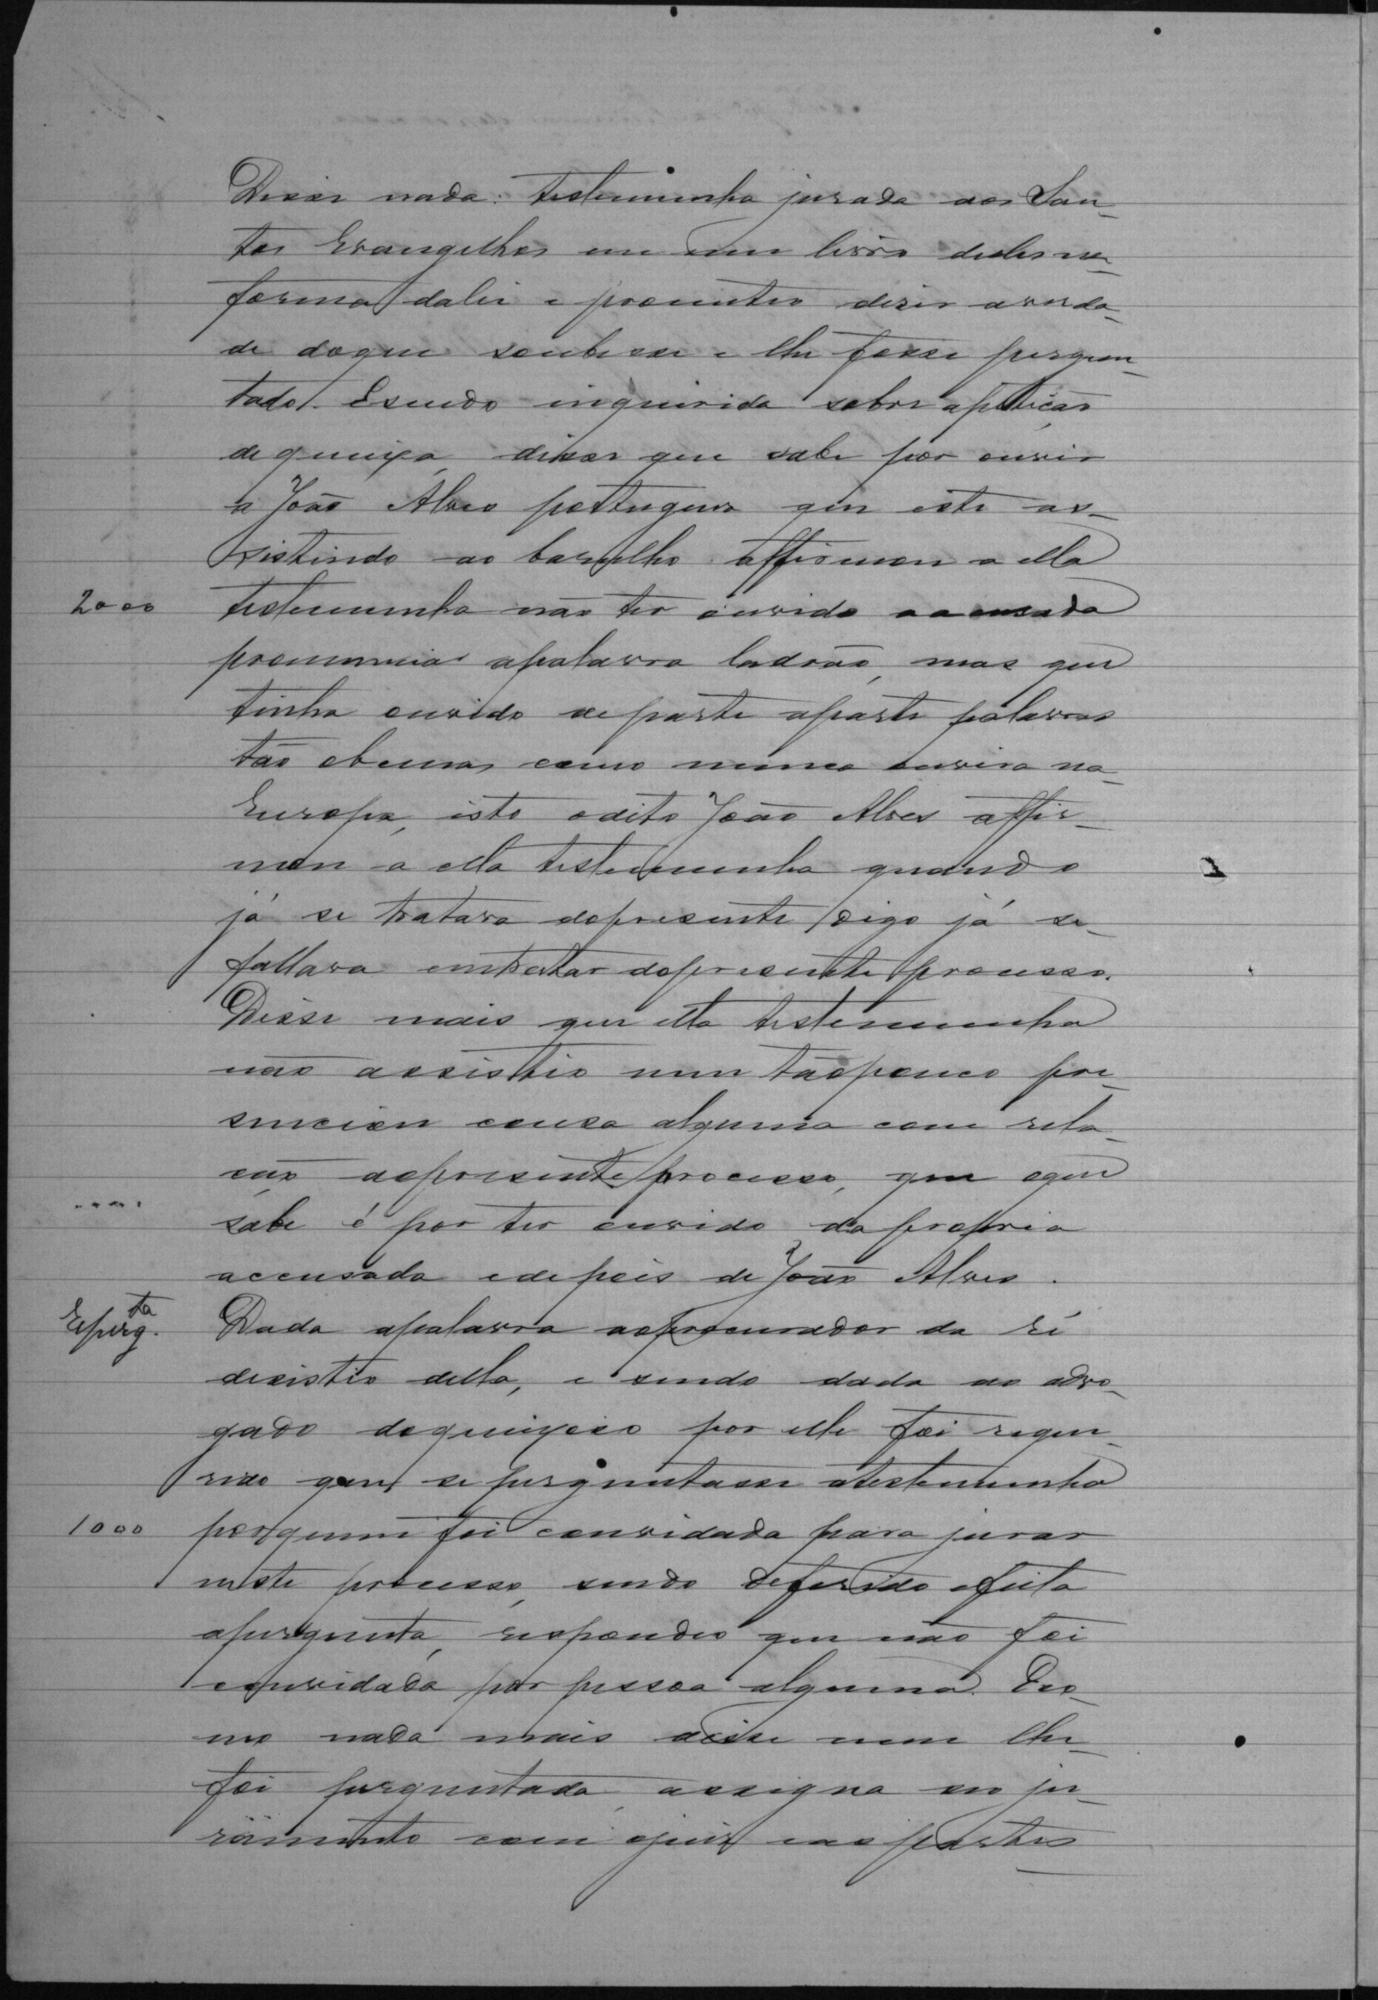 Disse nada: testemunha jurada aos San-
tos Evangelhos em um livro delles na
forma dalei e prometeo dizer averda-
de doque soubesse e lhe fosse pergun-
tado. Esendo inquirida sobre apetiçao
dequeixa, disse que sabe por ouvir
a João Alves portuguez que este as-
sistindo ao barulho affirmou a ella
2000 testemunha não ter ouvido a accusada
pronunciar apalavra ladrão, mas que
tinha ouvido departe aparte palavras
tão obcenas como nunca ouvira na
Europa, isto odito João Alves affir-
mou a ella testemunha quando
já se tratava dopresente digo já se
fallava emtratar dopresente processo.
Disse mais que ella testemunha
não assistio nem tãopouco pre-
senciou cousa alguma com rela-
ção aopresente processo, que oque
sabe é por ter ouvido da propria
accusada edepois de João Alves.
Eperg.ta Dada apalavra aoprocurador da ré
desistio della, e sendo dada ao advo-
gado doqueixoso por elle foi reque-
rido que se perguntasse atestemunha
1000 porquem foi convidada para jurar
neste processo, sendo deferido efeita
apergunta, respondeo que não foi
convidada por pessoa alguma. Eco-
mo nada mais disse nem lhe
foi perguntado, assigna seo ju-
ramento com ojuiz eas partes